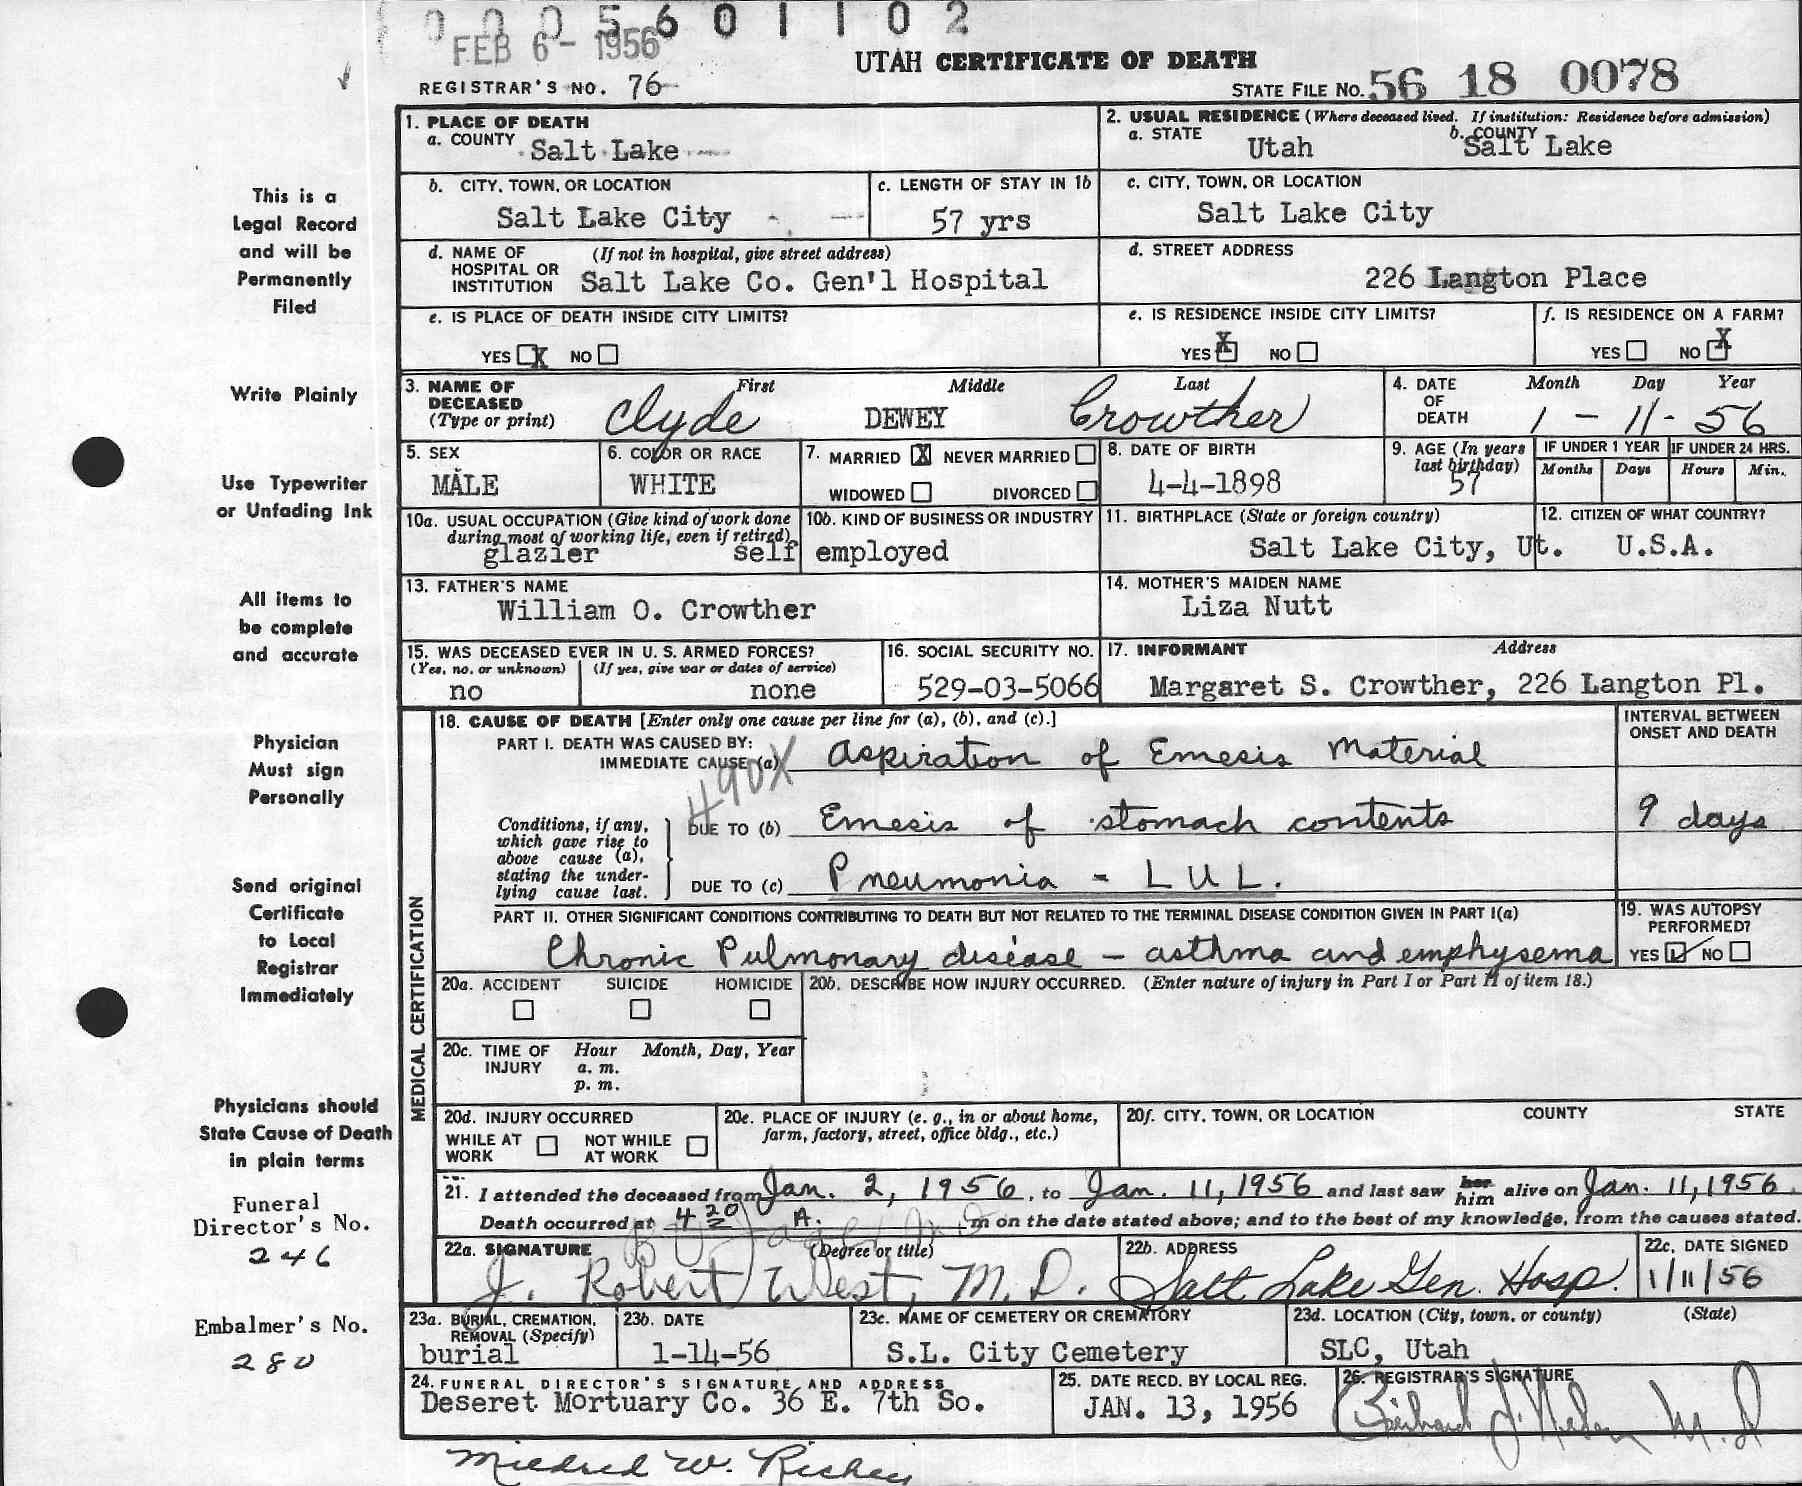 0 0 0 5 6 0 1 1 0 2
FEB 6 - 1956
UTAH CERTIFICATE OF DEATH
REGISTRAR'S NO. 76
STATE FILE NO. 56 18 0078
This is a
Legal Record
and will be
Permanently
Filed
Write Plainly
Use Typewriter
or Unfading Ink
All items to
be complete
and accurate
Physician
Must sign
Personally
Send original
Certificate
to Local
Registrar
Immediately
Physicians should
State Cause of Death
in plain terms
Funeral
Director's No.
246
Embalmer's No.
280
1. PLACE OF DEATH
a. COUNTY Salt Lake
2. USUAL RESIDENCE (Where deceased lived. If institution: Residence before admission)
a. STATE Utah b. COUNTY Salt Lake
b. CITY, TOWN, OR LOCATION
Salt Lake City
c. LENGTH OF STAY IN 1b
57 yrs
c. CITY, TOWN, OR LOCATION
Salt Lake City
d. NAME OF HOSPITAL OR INSTITUTION (If not in hospital, give street address)
Salt Lake Co. Gen'l Hospital
d. STREET ADDRESS
226 Langton Place
e. IS PLACE OF DEATH INSIDE CITY LIMITS?
YES X NO
e. IS RESIDENCE INSIDE CITY LIMITS?
YES X NO
f. IS RESIDENCE ON A FARM?
YES NO X
3. NAME OF DECEASED (Type or print)
First Middle Last
Clyde DEWEY Crowther
4. DATE OF DEATH
Month Day Year
1 - 11 - 56
5. SEX
MALE
6. COLOR OR RACE
WHITE
7. MARRIED X NEVER MARRIED
WIDOWED DIVORCED
8. DATE OF BIRTH
4-4-1898
9. AGE (In years last birthday)
57
IF UNDER 1 YEAR
Months Days
IF UNDER 24 HRS.
Hours Min.
10a. USUAL OCCUPATION (Give kind of work done
during most of working life, even if retired)
glazier self
10b. KIND OF BUSINESS OR INDUSTRY
employed
11. BIRTHPLACE (State or foreign country)
Salt Lake City, Ut.
12. CITIZEN OF WHAT COUNTRY?
U.S.A.
13. FATHER'S NAME
William O. Crowther
14. MOTHER'S MAIDEN NAME
Liza Nutt
15. WAS DECEASED EVER IN U. S. ARMED FORCES?
(Yes, no, or unknown) (If yes, give war or dates of service)
no none
16. SOCIAL SECURITY NO.
529-03-5066
17. INFORMANT Address
Margaret S. Crowther, 226 Langton Pl.
MEDICAL CERTIFICATION
18. CAUSE OF DEATH [Enter only one cause per line for (a), (b), and (c).]
INTERVAL BETWEEN
ONSET AND DEATH
PART I. DEATH WAS CAUSED BY:
IMMEDIATE CAUSE (a) Aspiration of Emesis Material
490X
Conditions, if any,
which gave rise to
above cause (a),
stating the under-
lying cause last.
DUE TO (b) Emesis of stomach contents
9 days
DUE TO (c) Pneumonia - LUL.
PART II. OTHER SIGNIFICANT CONDITIONS CONTRIBUTING TO DEATH BUT NOT RELATED TO THE TERMINAL DISEASE CONDITION GIVEN IN PART I(a)
Chronic Pulmonary disease - asthma and emphysema
19. WAS AUTOPSY
PERFORMED?
YES NO
20a. ACCIDENT SUICIDE HOMICIDE
20b. DESCRIBE HOW INJURY OCCURRED. (Enter nature of injury in Part I or Part II of item 18.)
20c. TIME OF INJURY
Hour Month, Day, Year
a. m.
p. m.
20d. INJURY OCCURRED
WHILE AT WORK NOT WHILE AT WORK
20e. PLACE OF INJURY (e. g., in or about home,
farm, factory, street, office bldg., etc.)
20f. CITY, TOWN, OR LOCATION COUNTY STATE
21. I attended the deceased from Jan. 2, 1956, to Jan. 11, 1956 and last saw her him alive on Jan. 11, 1956.
Death occurred at 4 20 A. m on the date stated above; and to the best of my knowledge, from the causes stated.
22a. SIGNATURE (Degree or title)
J. Robert West, M.D.
22b. ADDRESS
Salt Lake Gen. Hosp.
22c. DATE SIGNED
1/11/56
23a. BURIAL, CREMATION,
REMOVAL (Specify)
burial
23b. DATE
1-14-56
23c. NAME OF CEMETERY OR CREMATORY
S.L. City Cemetery
23d. LOCATION (City, town, or county) (State)
SLC, Utah
24. FUNERAL DIRECTOR'S SIGNATURE AND ADDRESS
Deseret Mortuary Co. 36 E. 7th So.
25. DATE RECD. BY LOCAL REG.
JAN. 13, 1956
26. REGISTRAR'S SIGNATURE
M.D
Mildred W. Richey